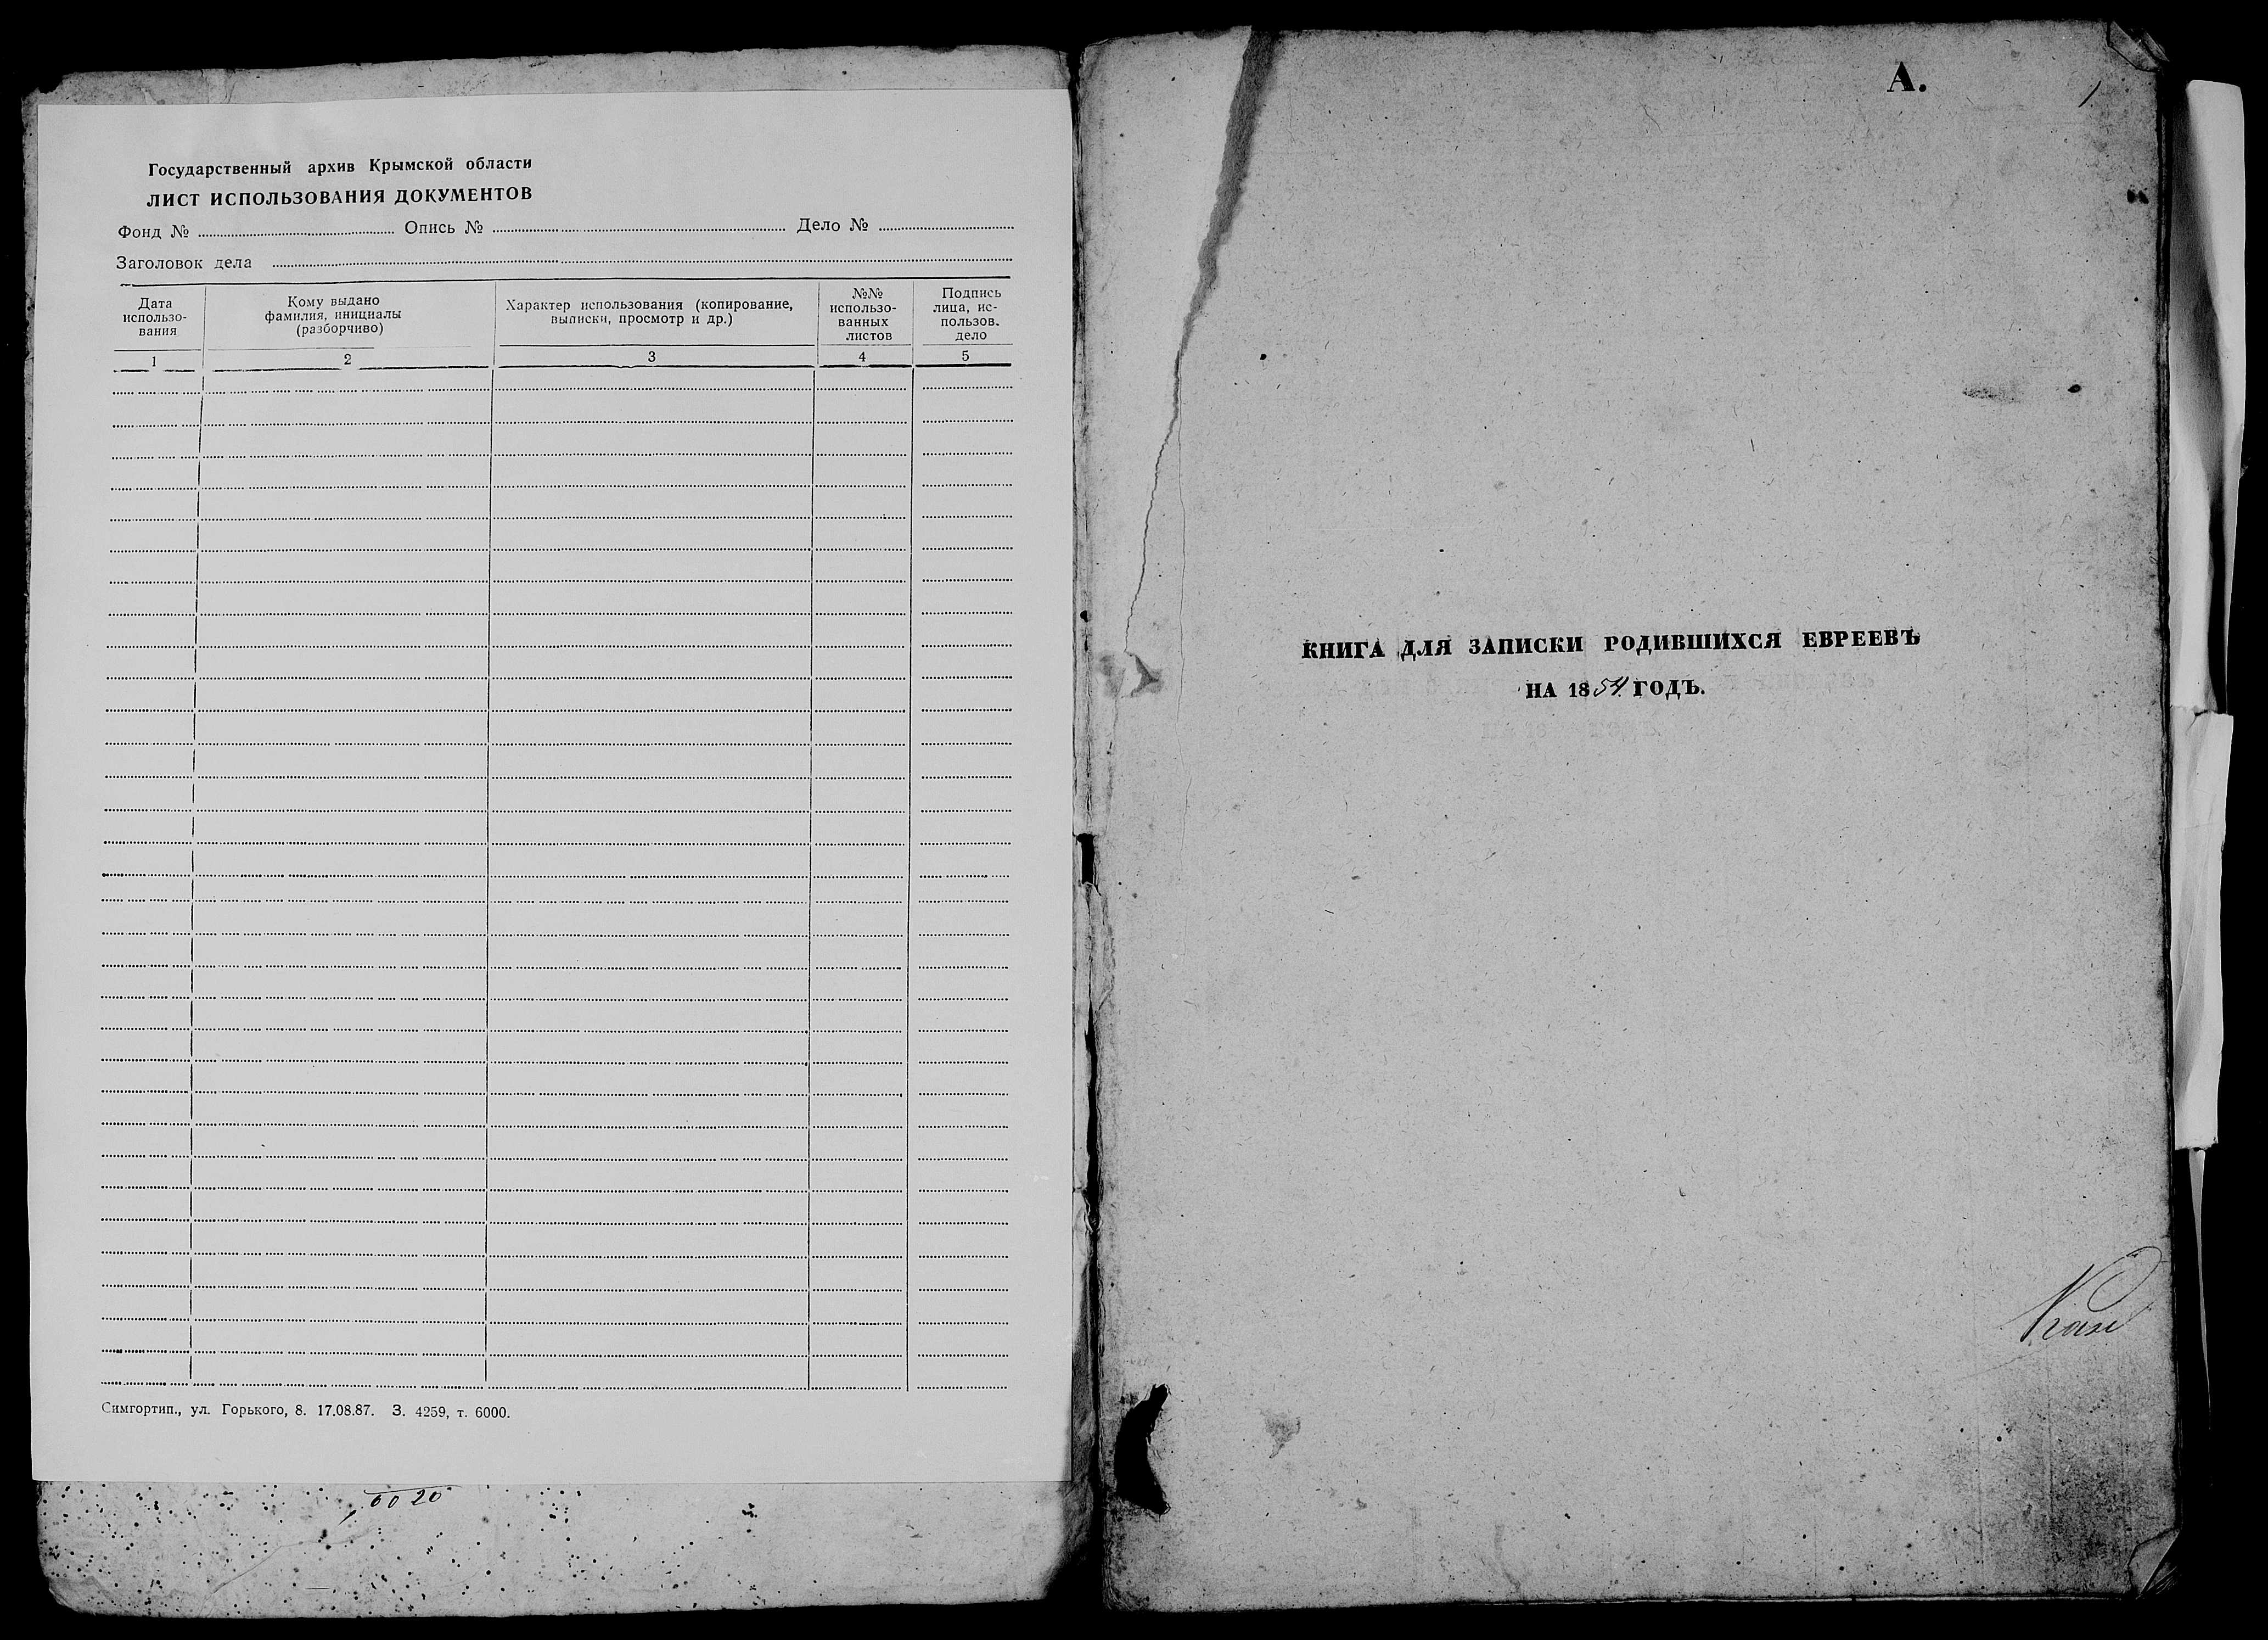 Государственный архив Крымской области
ЛИСТ ИСПОЛЬЗОВАНИЯ ДОКУМЕНТОВ
Фонд № Опись № Дело №
Заголовок дела
Дата использо-
вания
Кому выдано
фамилия, инициалы
(разборчиво)
Характер использования (копирование,
выписки, просмотр и др.)
№№
использо-
ванных
листов
Подпись
лица, ис-
пользов.
дело
1 2 3 4 5
Симгортип., ул. Горького, 8. 17.08.87. З. 4259, т. 6000.
А.
1
КНИГА ДЛЯ ЗАПИСКИ РОДИВШИХСЯ ЕВРЕЕВЪ
НА 1854 ГОДЪ.